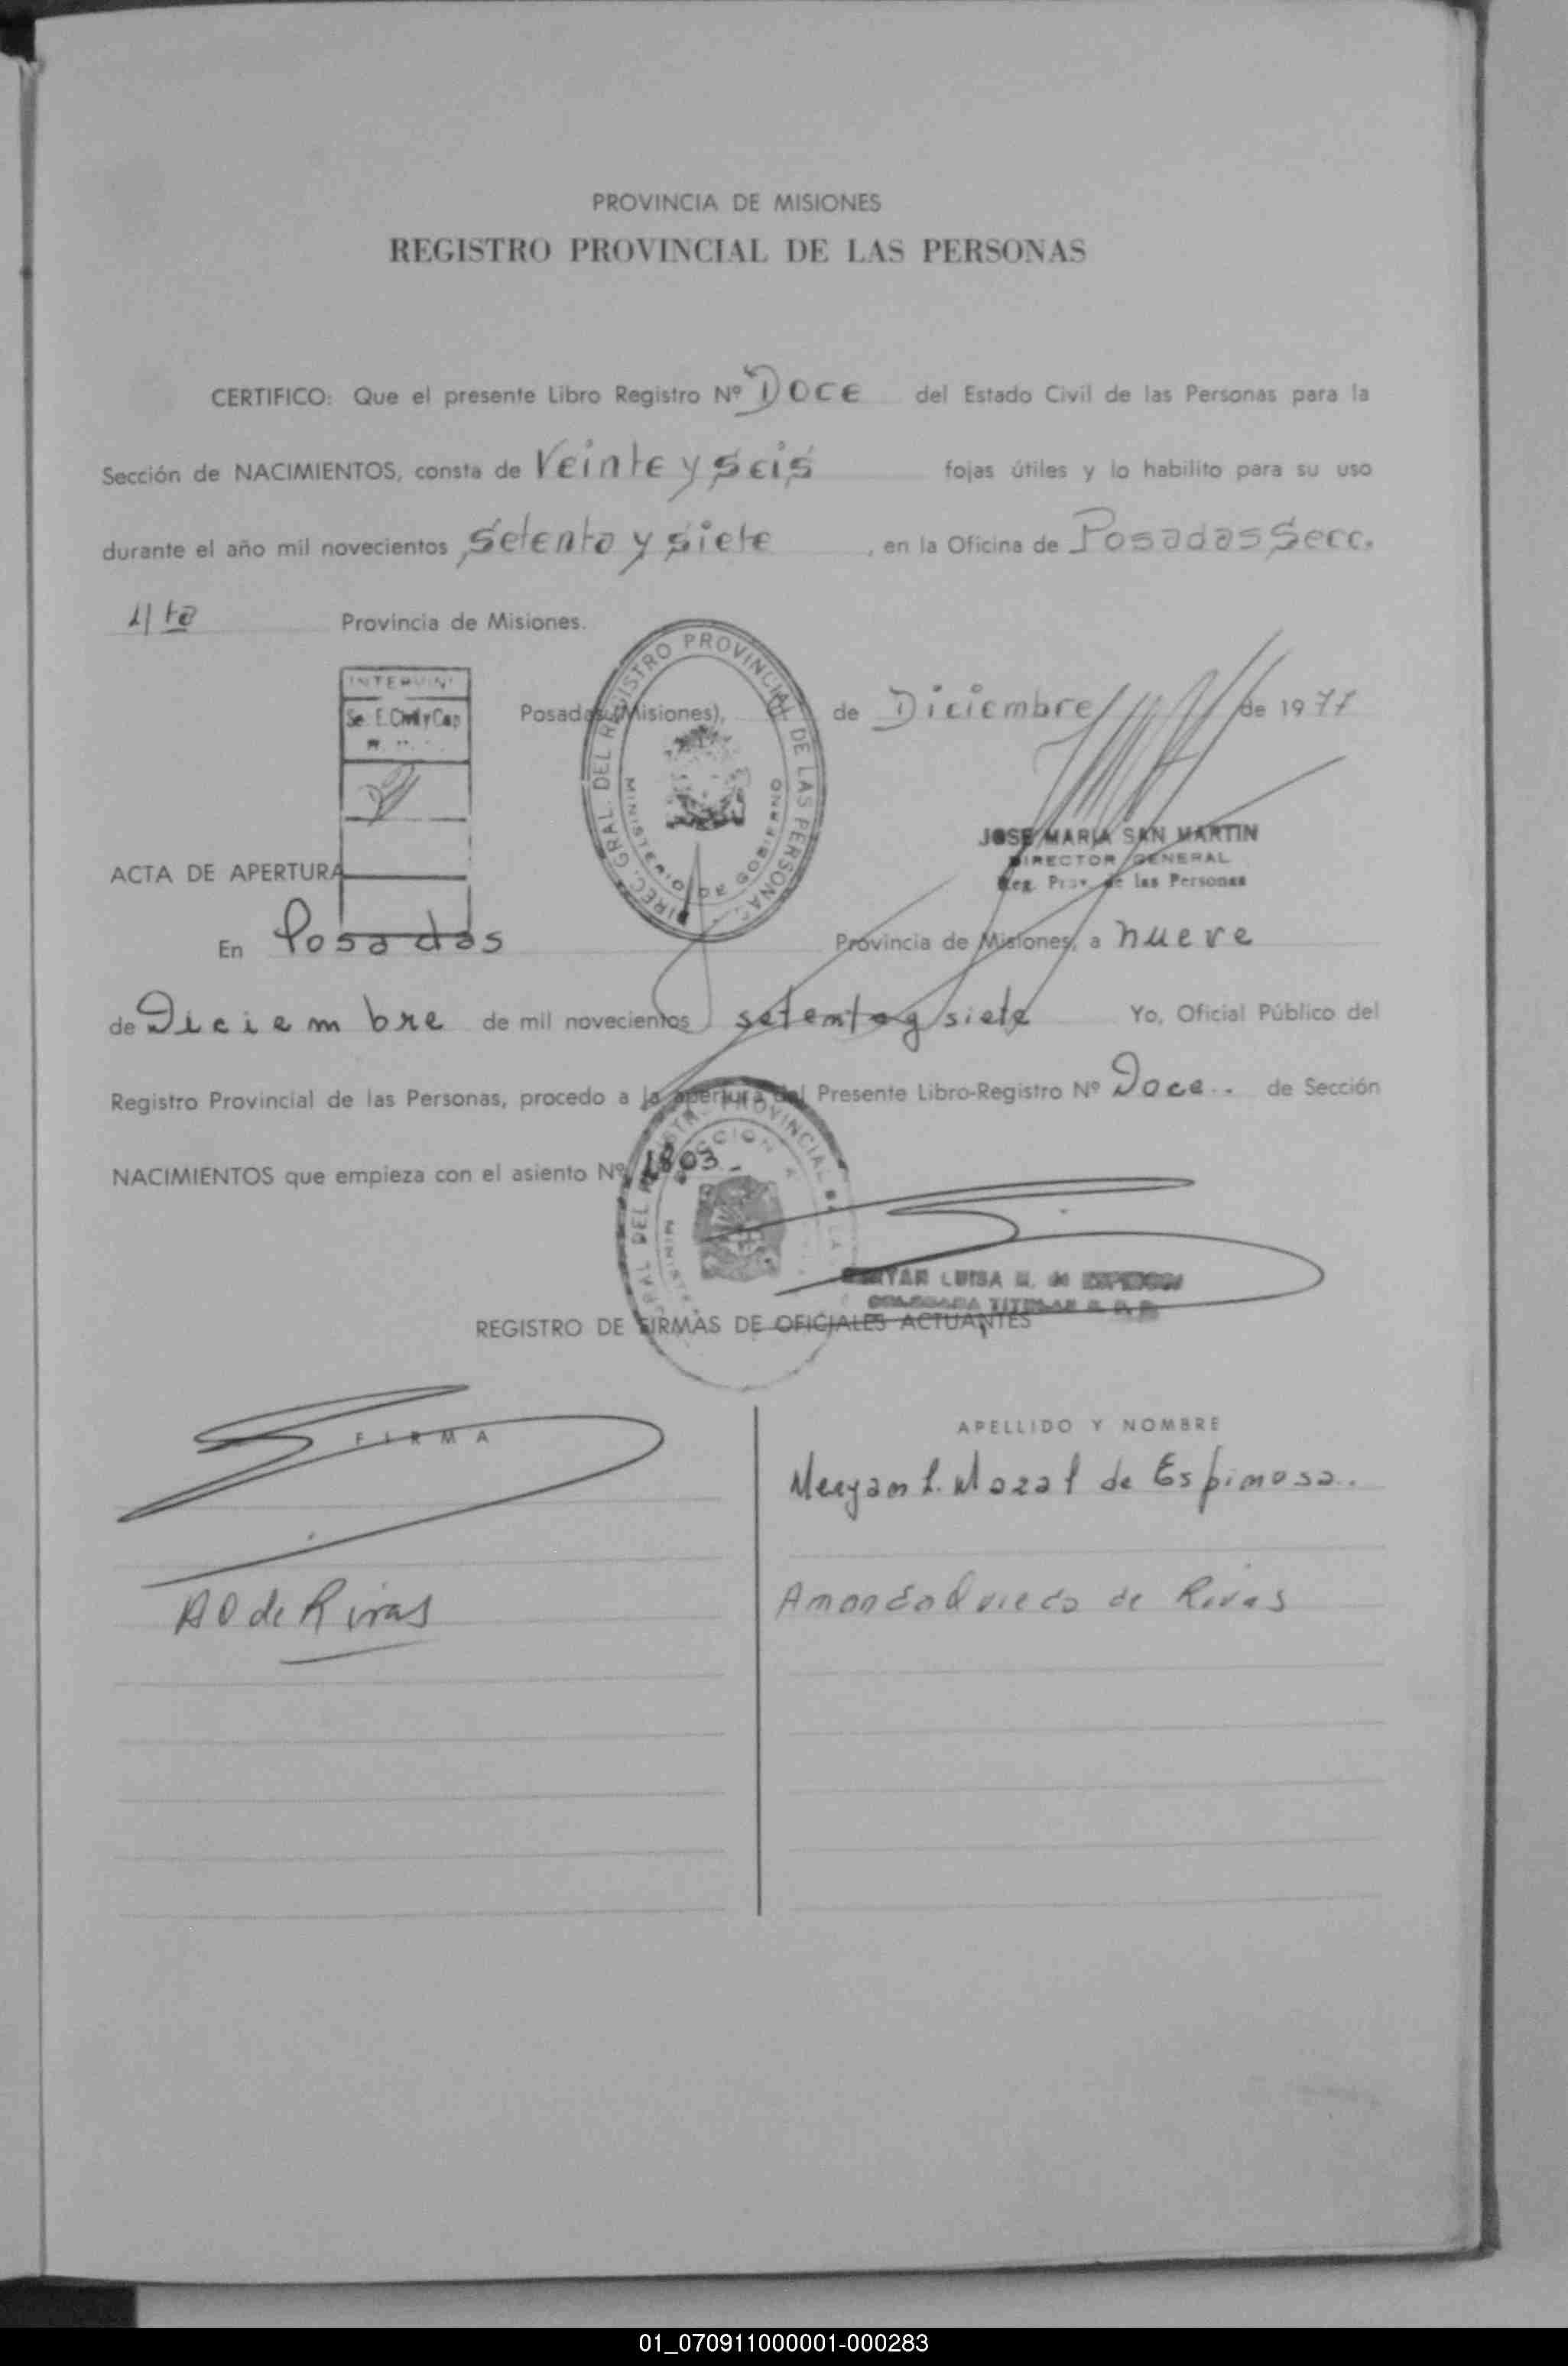 PROVINCIA DE MISIONES
REGISTRO PROVINCIAL DE LAS PERSONAS
CERTIFICO: Que el presente Libro Registro Nº Doce del Estado Civil de las Personas para la
Sección de NACIMIENTOS, consta de Veinte y seis fojas útiles y lo habilito para su uso
durante el año mil novecientos Setenta y siete, en la Oficina de Posadas Secc.
4ta Provincia de Misiones.
INTERVINO
Se. E. Civil y Cap
Posadas (Misiones), de Diciembre de 1977
DIREC. GRAL. DEL REGISTRO PROVINCIAL DE LAS PERSONAS
MINISTERIO DE GOBIERNO
JOSE MARIA SAN MARTIN
DIRECTOR GENERAL
Reg. Prov. de las Personas
ACTA DE APERTURA
En Posadas Provincia de Misiones, a nueve
de Diciembre de mil novecientos setenta y siete Yo, Oficial Público del
Registro Provincial de las Personas, procedo a la apertura del Presente Libro-Registro Nº Doce.. de Sección
NACIMIENTOS que empieza con el asiento Nº 1803_
LUISA M. de
TITULAR
REGISTRO DE FIRMAS DE OFICIALES ACTUANTES
FIRMA
APELLIDO Y NOMBRE
Meryam L. Mazal de Espinosa.
AO de Rivas
Amanda Oviedo de Rivas
01_070911000001-000283